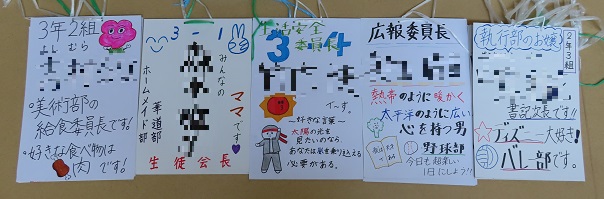 3年2組
よしむら
美術部の
給食委員長です!
好きな食べ物は
肉です!
3-1
みんなの
ママです
華道部
ホームメイド部
生徒会長
生活安全
委員長
3-4
でーす。
～好きな言葉～
太陽の光を
見たいのなら、
あなたは嵐を乗り越える
必要がある。
広報委員長
熱帯のように暖かく
太平洋のように広い
心を持つ男
野球部
今日も超楽しい
1日にしよう!!
執行部のお嬢
2年3組
書記次長です!!
ディズニー大好き!
バレー部です。